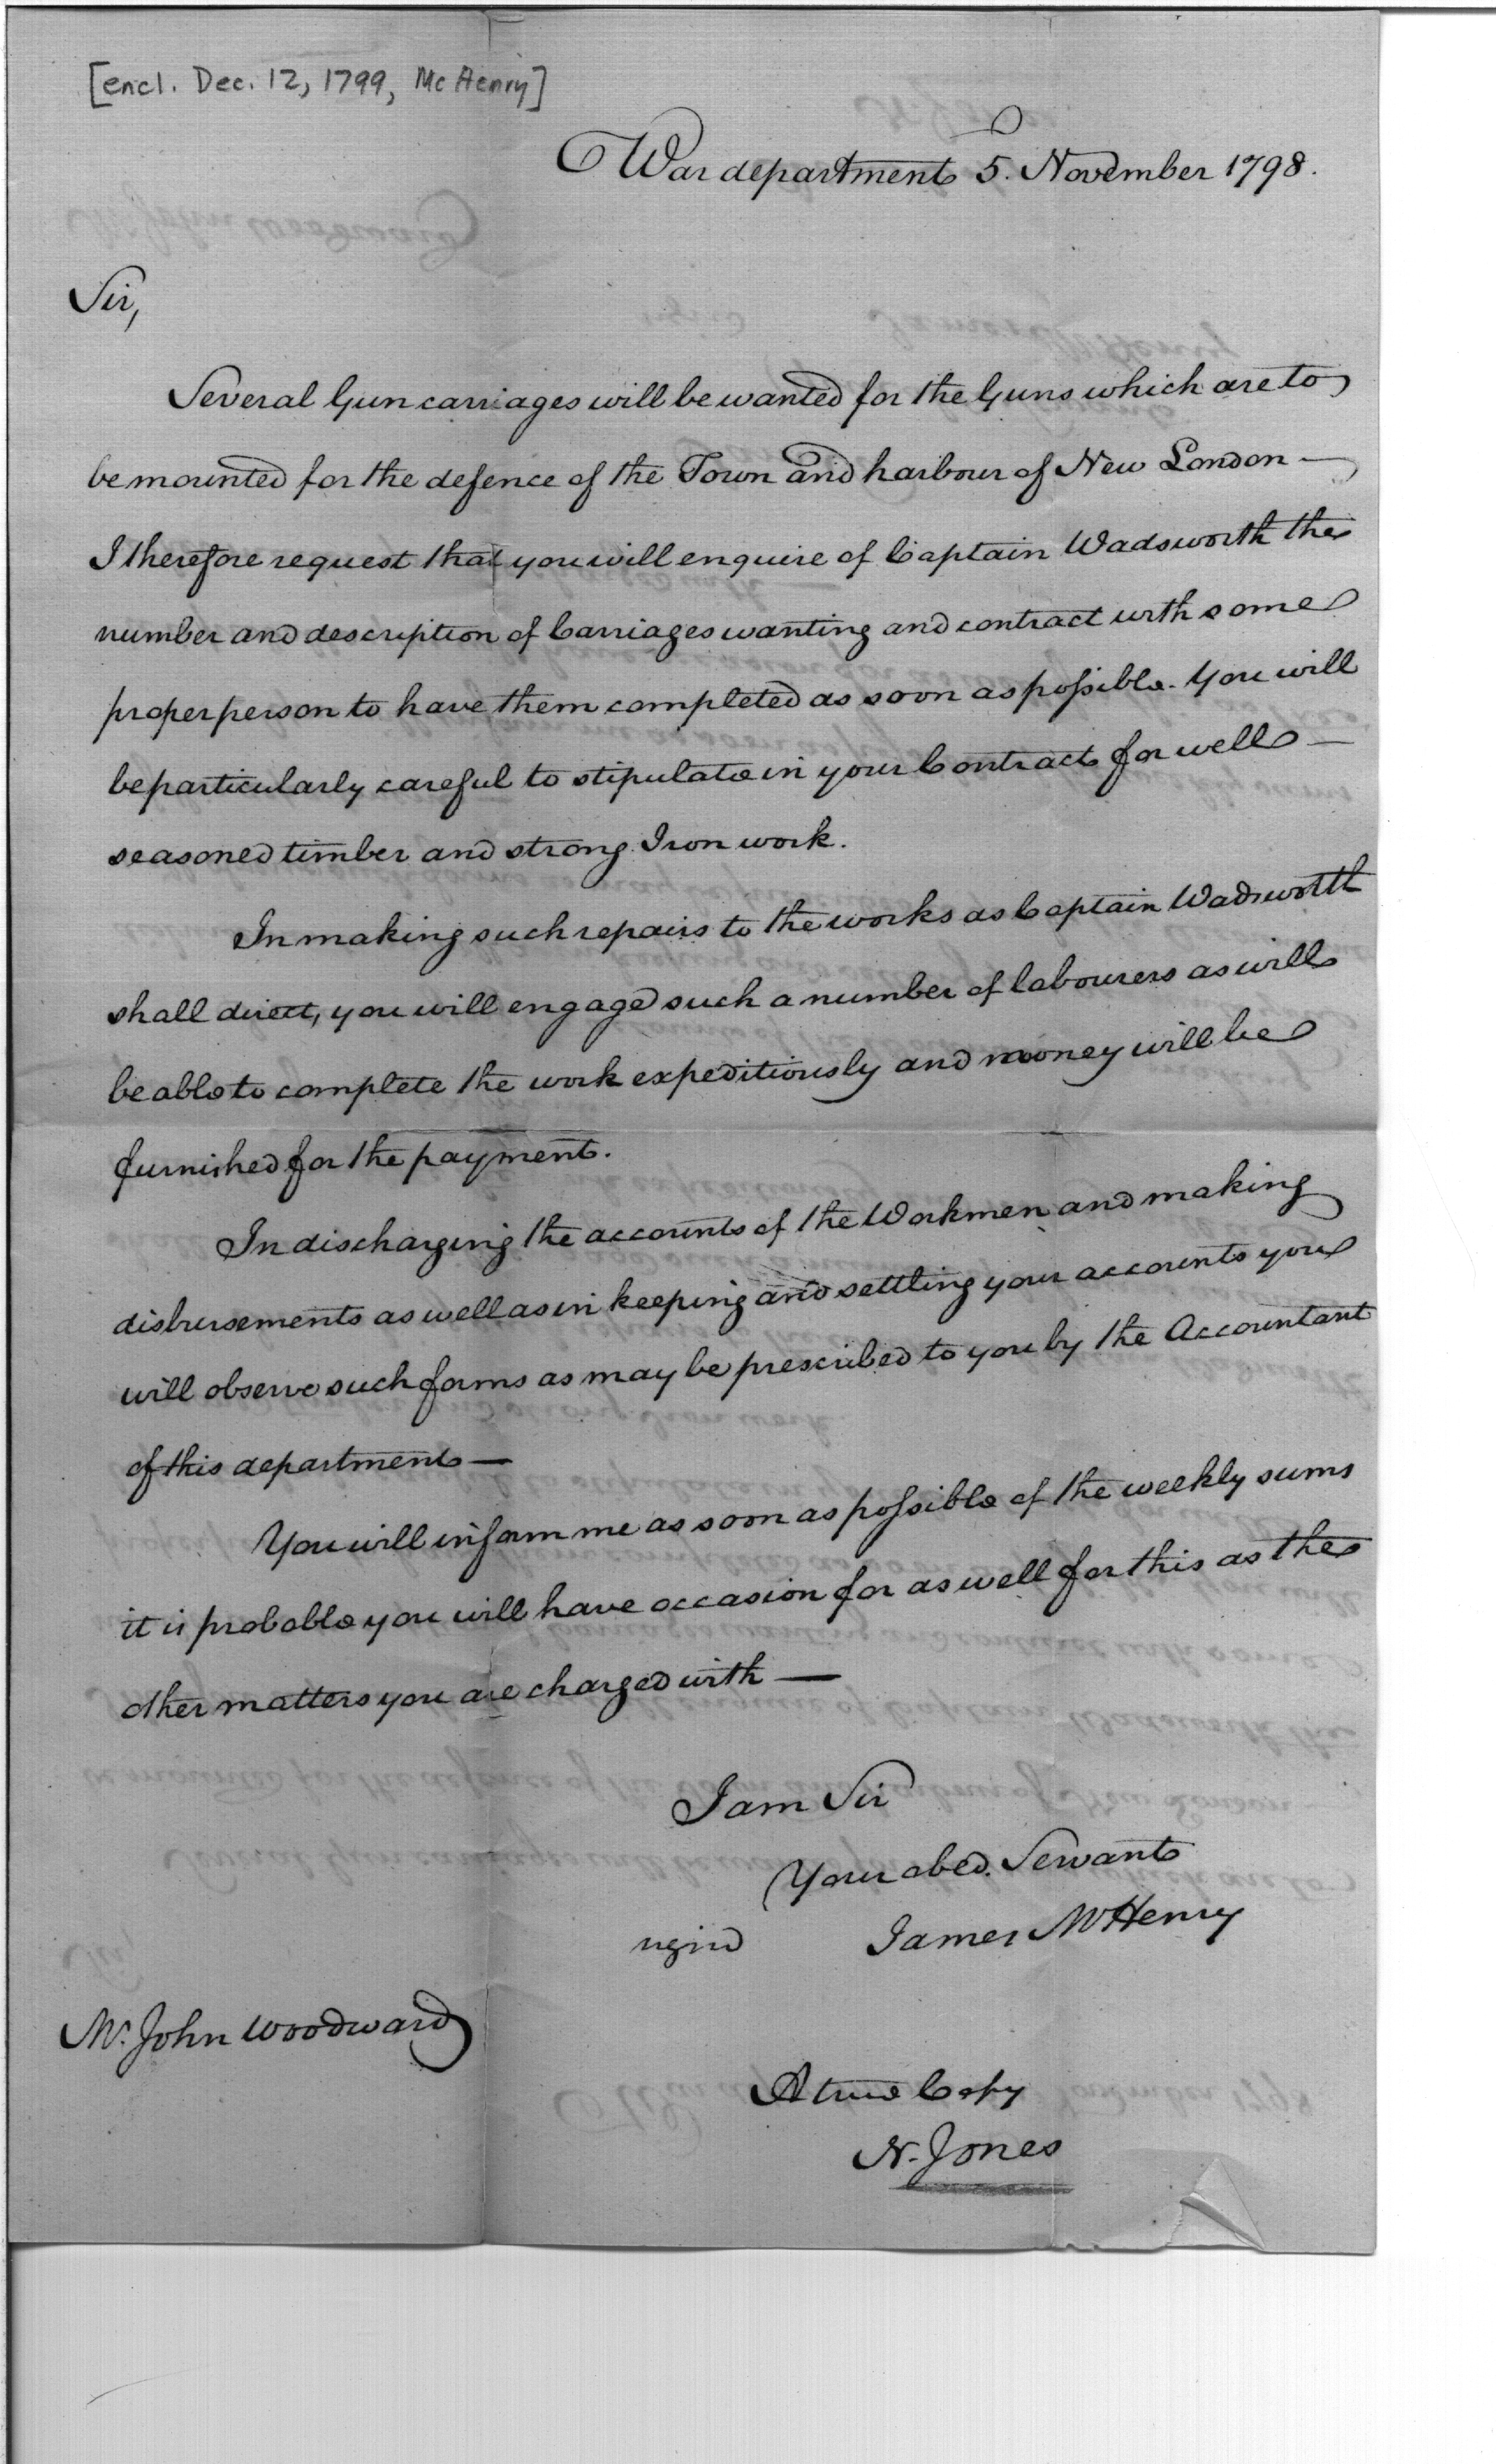 [encl. Dec. 12, 1799, McHenry]
War department 5. November 1798.
Sir,
Several Gun carriages will be wanted for the Guns which are to
be mounted for the defence of the Town and harbour of New London —
I therefore request that you will enquire of Captain Wadsworth the
number and description of Carriages wanting and contract with some
proper person to have them completed as soon as possible. You will
be particularly careful to stipulate in your Contract for well —
seasoned timber and strong Iron work.
In making such repairs to the works as Captain Wadsworth
shall direct, you will engage such a number of labourers as will
be able to complete the work expeditiously and money will be
furnished for the payment.
In discharging the accounts of the Workmen and making
disbursements as well as in keeping and settling your accounts you
will observe such forms as may be prescribed to you by the Accountant
of this department —
You will inform me as soon as possible of the weekly sums
it is probable you will have occasion for as well for this as the
other matters you are charged with —
I am Sir
Your obed. Servant
signd James McHenry
Mr. John Woodward
A true Copy
N. Jones